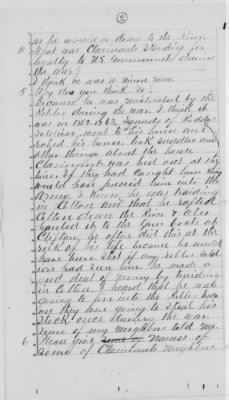 2
as he would or down to the River
4 What was Claimants standing for
loyalty to U.S. Government during
the war?
I think he was a Union man.
5 Why do you think so?
because he was mistreated by the
Rebles during the war. I think it
was in 1862 or 3 Squads of Rebble
Soldiers went to his house and
robed his house took Saddles and
other things about the house
Claimant was hid out at the
time If they had caught him they
would have pressed him into the
Army. I know he was trading
in Cotton and that he rafted
Cotton down the River & also
hauled it to the Gun boats at
Clifton, he often did this at the
risk of his life because he would
have been Shot if any rebles sold
iers had seen him he made a
good deal of money by trading
in Cotton. I heard that he was
going to fire into the Rebles beca
use they were going to Steal his
Stock once during the war.
Some of my neighbors told me.
6 Please give names of
Some of Claimants neighbors